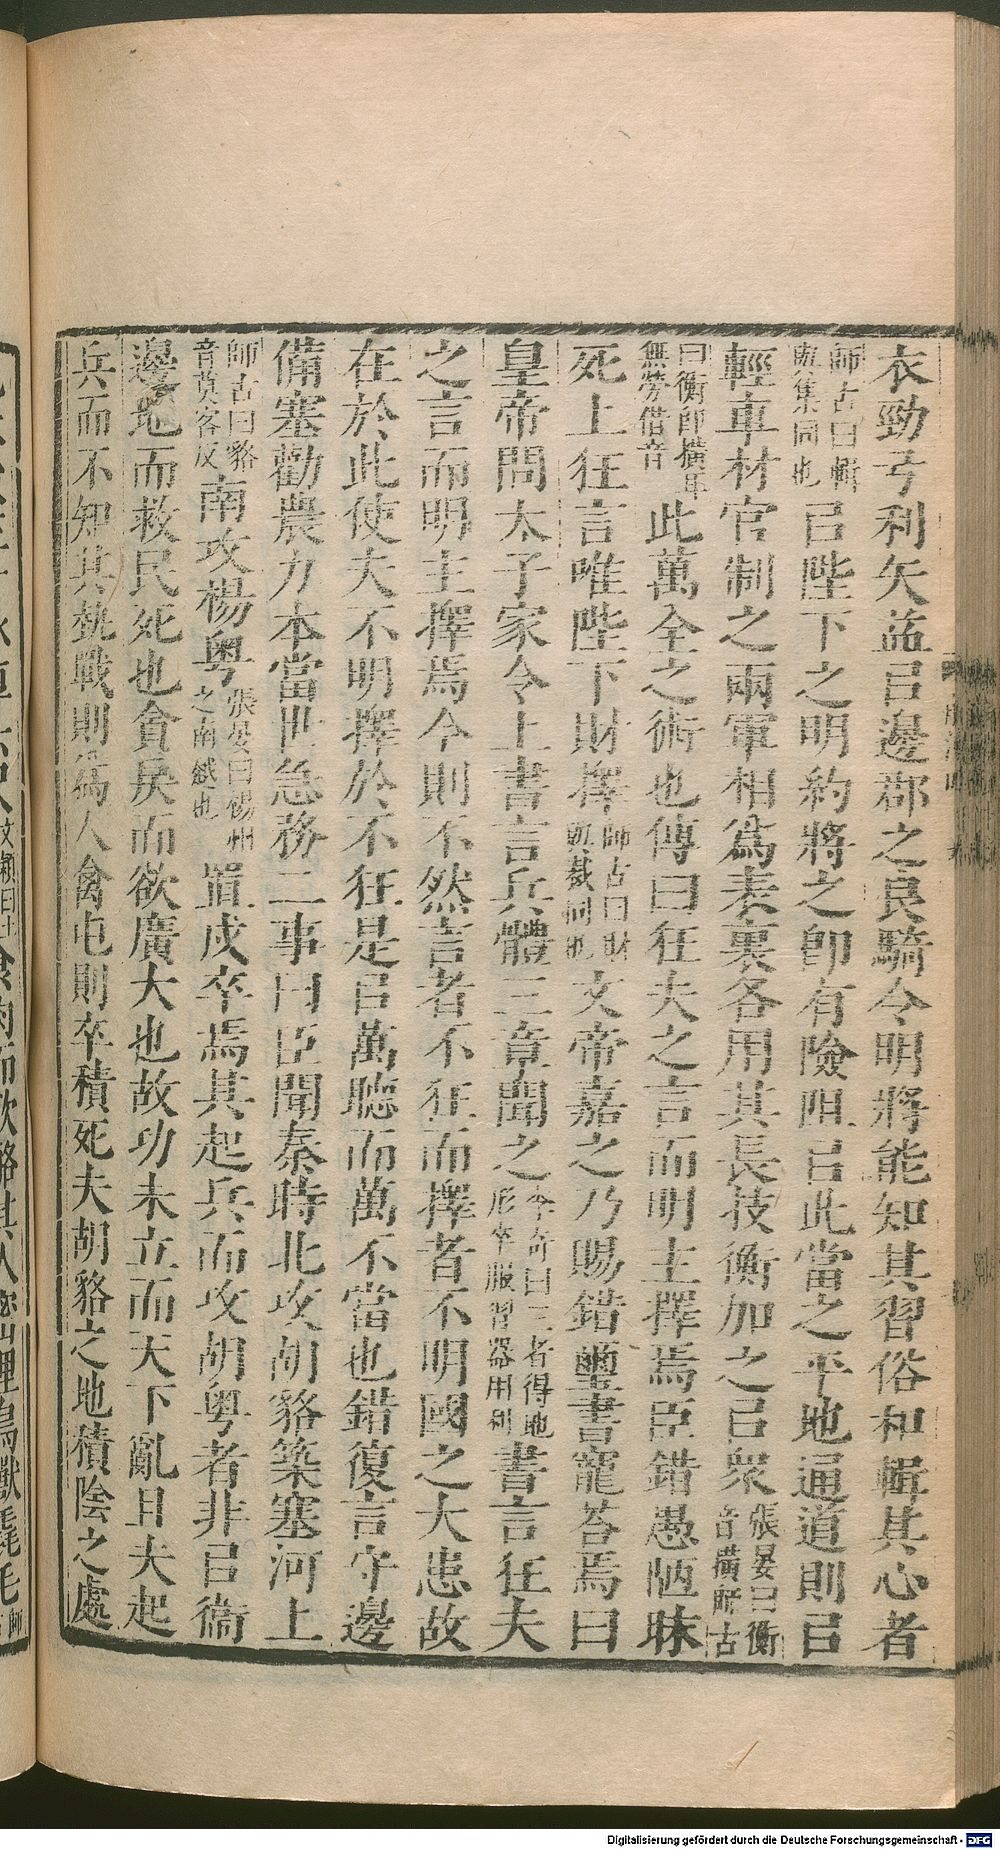 衣勁弓利矢益㠯邊郡之良騎令明將能知其習俗和輯其心者
師古曰輯與集同也㠯陛下之明約將之即有險阻㠯此當之平地通道則㠯
輕車材官制之兩軍相為表裏各用其長技衡加之㠯衆張晏曰衡音橫師古
曰衡即橫耳無勞借音此萬全之術也傳曰狂夫之言而明主擇焉臣錯愚陋昧
死上狂言唯陛下財擇師古曰財與裁同也文帝嘉之乃賜錯璽書寵荅焉曰
皇帝問太子家令上書言兵體三章聞之李奇曰三者得地形卒服習器用利書言狂夫
之言而明主擇焉今則不然言者不狂而擇者不明國之大患故
在於此使夫不明擇於不狂是㠯萬聽而萬不當也錯復言守邊
備塞勸農力本當世急務二事曰臣聞秦時北攻胡貉築塞河上
師古曰貉音莫客反南攻楊粤張晏曰楊州之南越也置戍卒焉其起兵而攻胡粤者非㠯衞
邊地而救民死也貪戾而欲廣大也故功未立而天下亂且夫起
兵而不知其埶戰則為人禽屯則卒積死夫胡貉之地積陰之處
Digitalisierung gefördert durch die Deutsche Forschungsgemeinschaft - DFG